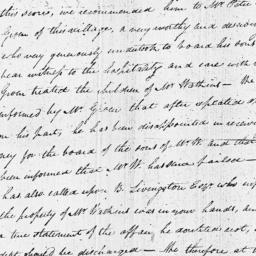 this score, we recommended him to Mr. Peter
Green of this village, a very worthy and
who very generously undertook to board his sons
bear witness to the hospitality and care with
Green treated the children of Mr Watkins - the
informed by Mr. Green that after repeated
on his part, he has been disappointed in
pay for the board of the sons of Mr W. and that
been informed these Mr W. has since
has also called upon B. Livingston Esqr who
the property of Mr Watkins was in your hands, an
a true statement of the affair, he doubted not,
debt should be discharged - the therefore at